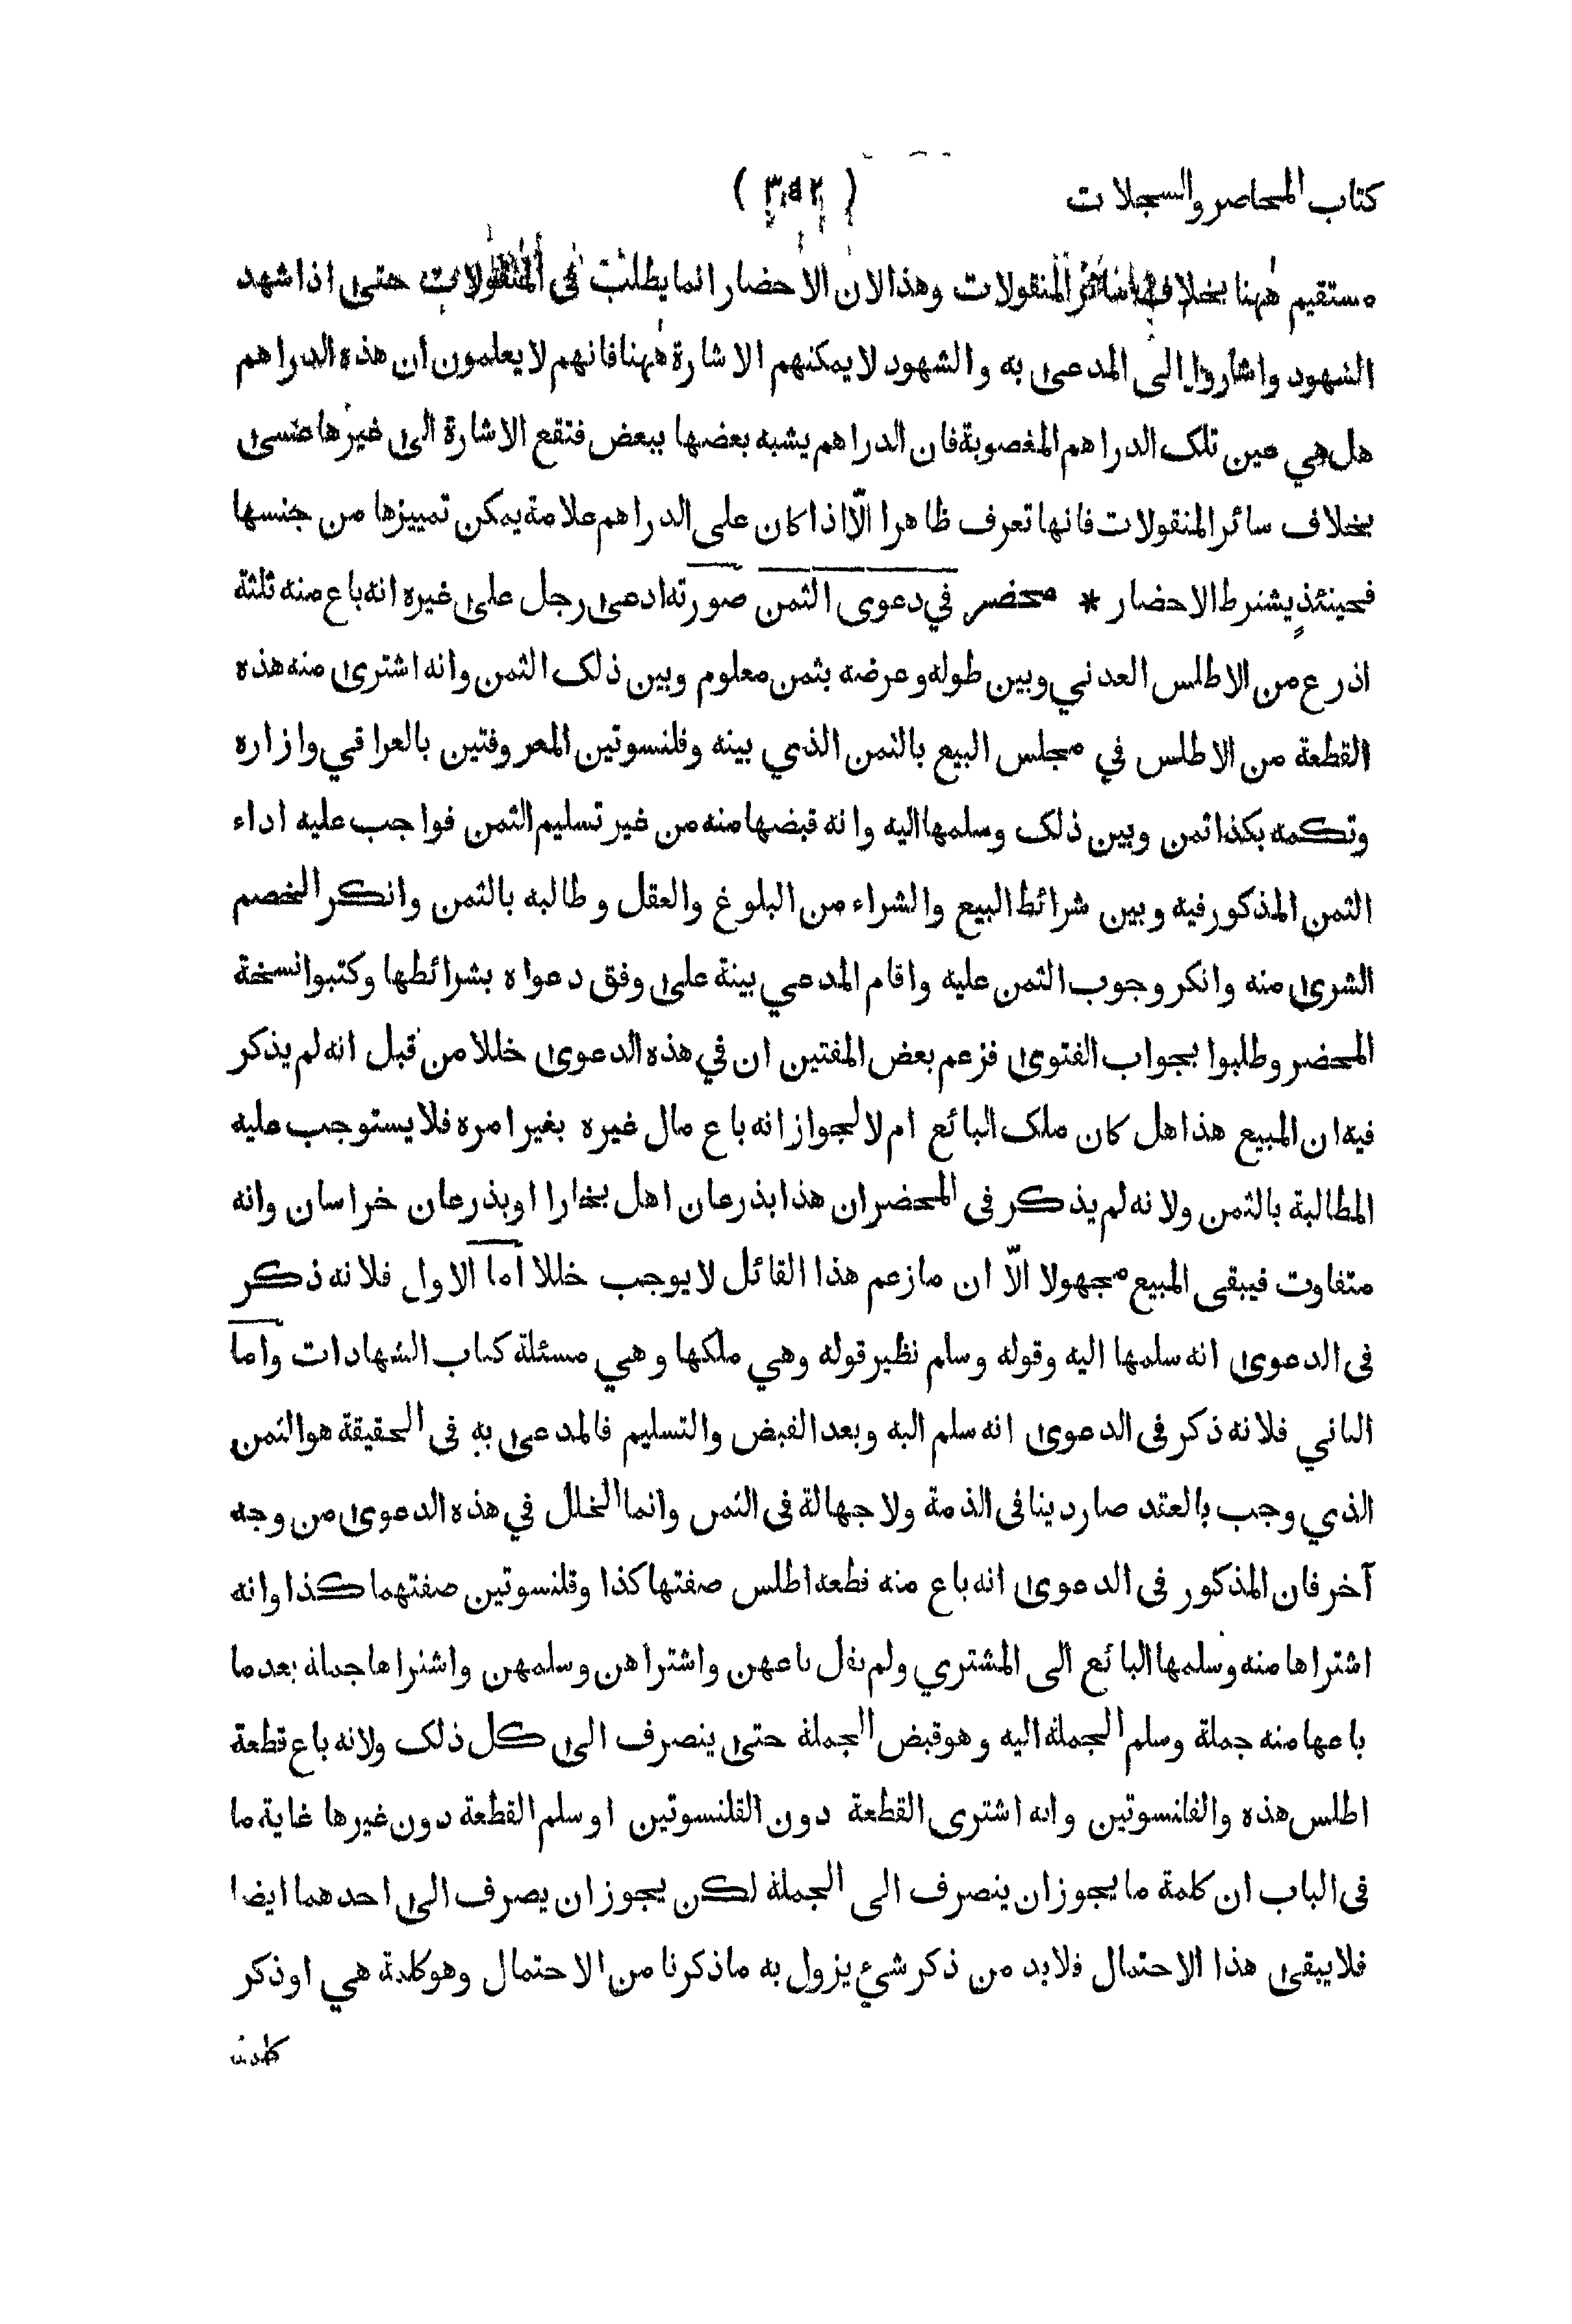 كتاب المحاضر والسجلات
( ٣٤٢ )
مستقيم ههنا بخلاف سائر المنقولات وهذا لان الاحضار انما يطلب في المنقولات حتى اذا شهد
الشهود واشاروا الى المدعى به والشهود لا يمكنهم الاشارة ههنا فانهم لا يعلمون ان هذه الدراهم
هل هي عين تلك الدراهم المغصوبة فان الدراهم يشبه بعضها ببعض فتقع الاشارة الى غيرها عسى
بخلاف سائر المنقولات فانها تعرف ظاهرا الّا اذا كان على الدراهم علامة يمكن تمييزها من جنسها
فحينئذٍ يشترط الاحضار * محضر في دعوى الثمن صورته ادعى رجل على غيره انه باع منه ثلثة
اذرع من الاطلس العدني وبين طوله وعرضه بثمن معلوم وبين ذلك الثمن وانه اشترى منه هذه
القطعة من الاطلس في مجلس البيع بالثمن الذي بينه وقلنسوتين المعروفتين بالعراقي وازاره
وتكمه بكذا ثمن وبين ذلك وسلمها اليه وانه قبضها منه من غير تسليم الثمن فواجب عليه اداء
الثمن المذكور فيه وبين شرائط البيع والشراء من البلوغ والعقل وطالبه بالثمن وانكر الخصم
الشرى منه وانكر وجوب الثمن عليه واقام المدعي بينة على وفق دعواه بشرائطها وكتبوا نسخة
المحضر وطلبوا بجواب الفتوى فزعم بعض المفتين ان في هذه الدعوى خللا من قبل انه لم يذكر
فيه ان المبيع هذا هل كان ملك البائع ام لا لجواز انه باع مال غيره بغير امره فلا يستوجب عليه
المطالبة بالثمن ولانه لم يذكر في المحضر ان هذا بذرعان اهل بخارا او بذرعان خراسان وانه
متفاوت فيبقى المبيع مجهولا الّا ان ما زعم هذا القائل لا يوجب خللا اما الاول فلانه ذكر
في الدعوى انه سلمها اليه وقوله وسلم نظير قوله وهي ملكها وهي مسئلة كتاب الشهادات واما
الثاني فلانه ذكر في الدعوى انه سلم اليه وبعد القبض والتسليم فالمدعى به في الحقيقة هو الثمن
الذي وجب بالعقد صار دينا في الذمة ولا جهالة في الثمن وانما الخلل في هذه الدعوى من وجه
آخر فان المذكور في الدعوى انه باع منه قطعه اطلس صفتها كذا وقلنسوتين صفتهما كذا وانه
اشتراها منه وسلمها البائع الى المشتري ولم يقل باعهن واشتراهن وسلمهن واشتراها جملة بعد ما
باعها منه جملة وسلم الجملة اليه وهو قبض الجملة حتى ينصرف الى كل ذلك ولانه باع قطعة
اطلس هذه والقلنسوتين وانه اشترى القطعة دون القلنسوتين او سلم القطعة دون غيرها غاية ما
في الباب ان كلمة ما يجوز ان ينصرف الى الجملة لكن يجوز ان يصرف الى احدهما ايضا
فلا يبقى هذا الاحتمال فلا بد من ذكر شيء يزول به ما ذكرنا من الاحتمال وهو كلمة هي او ذكر